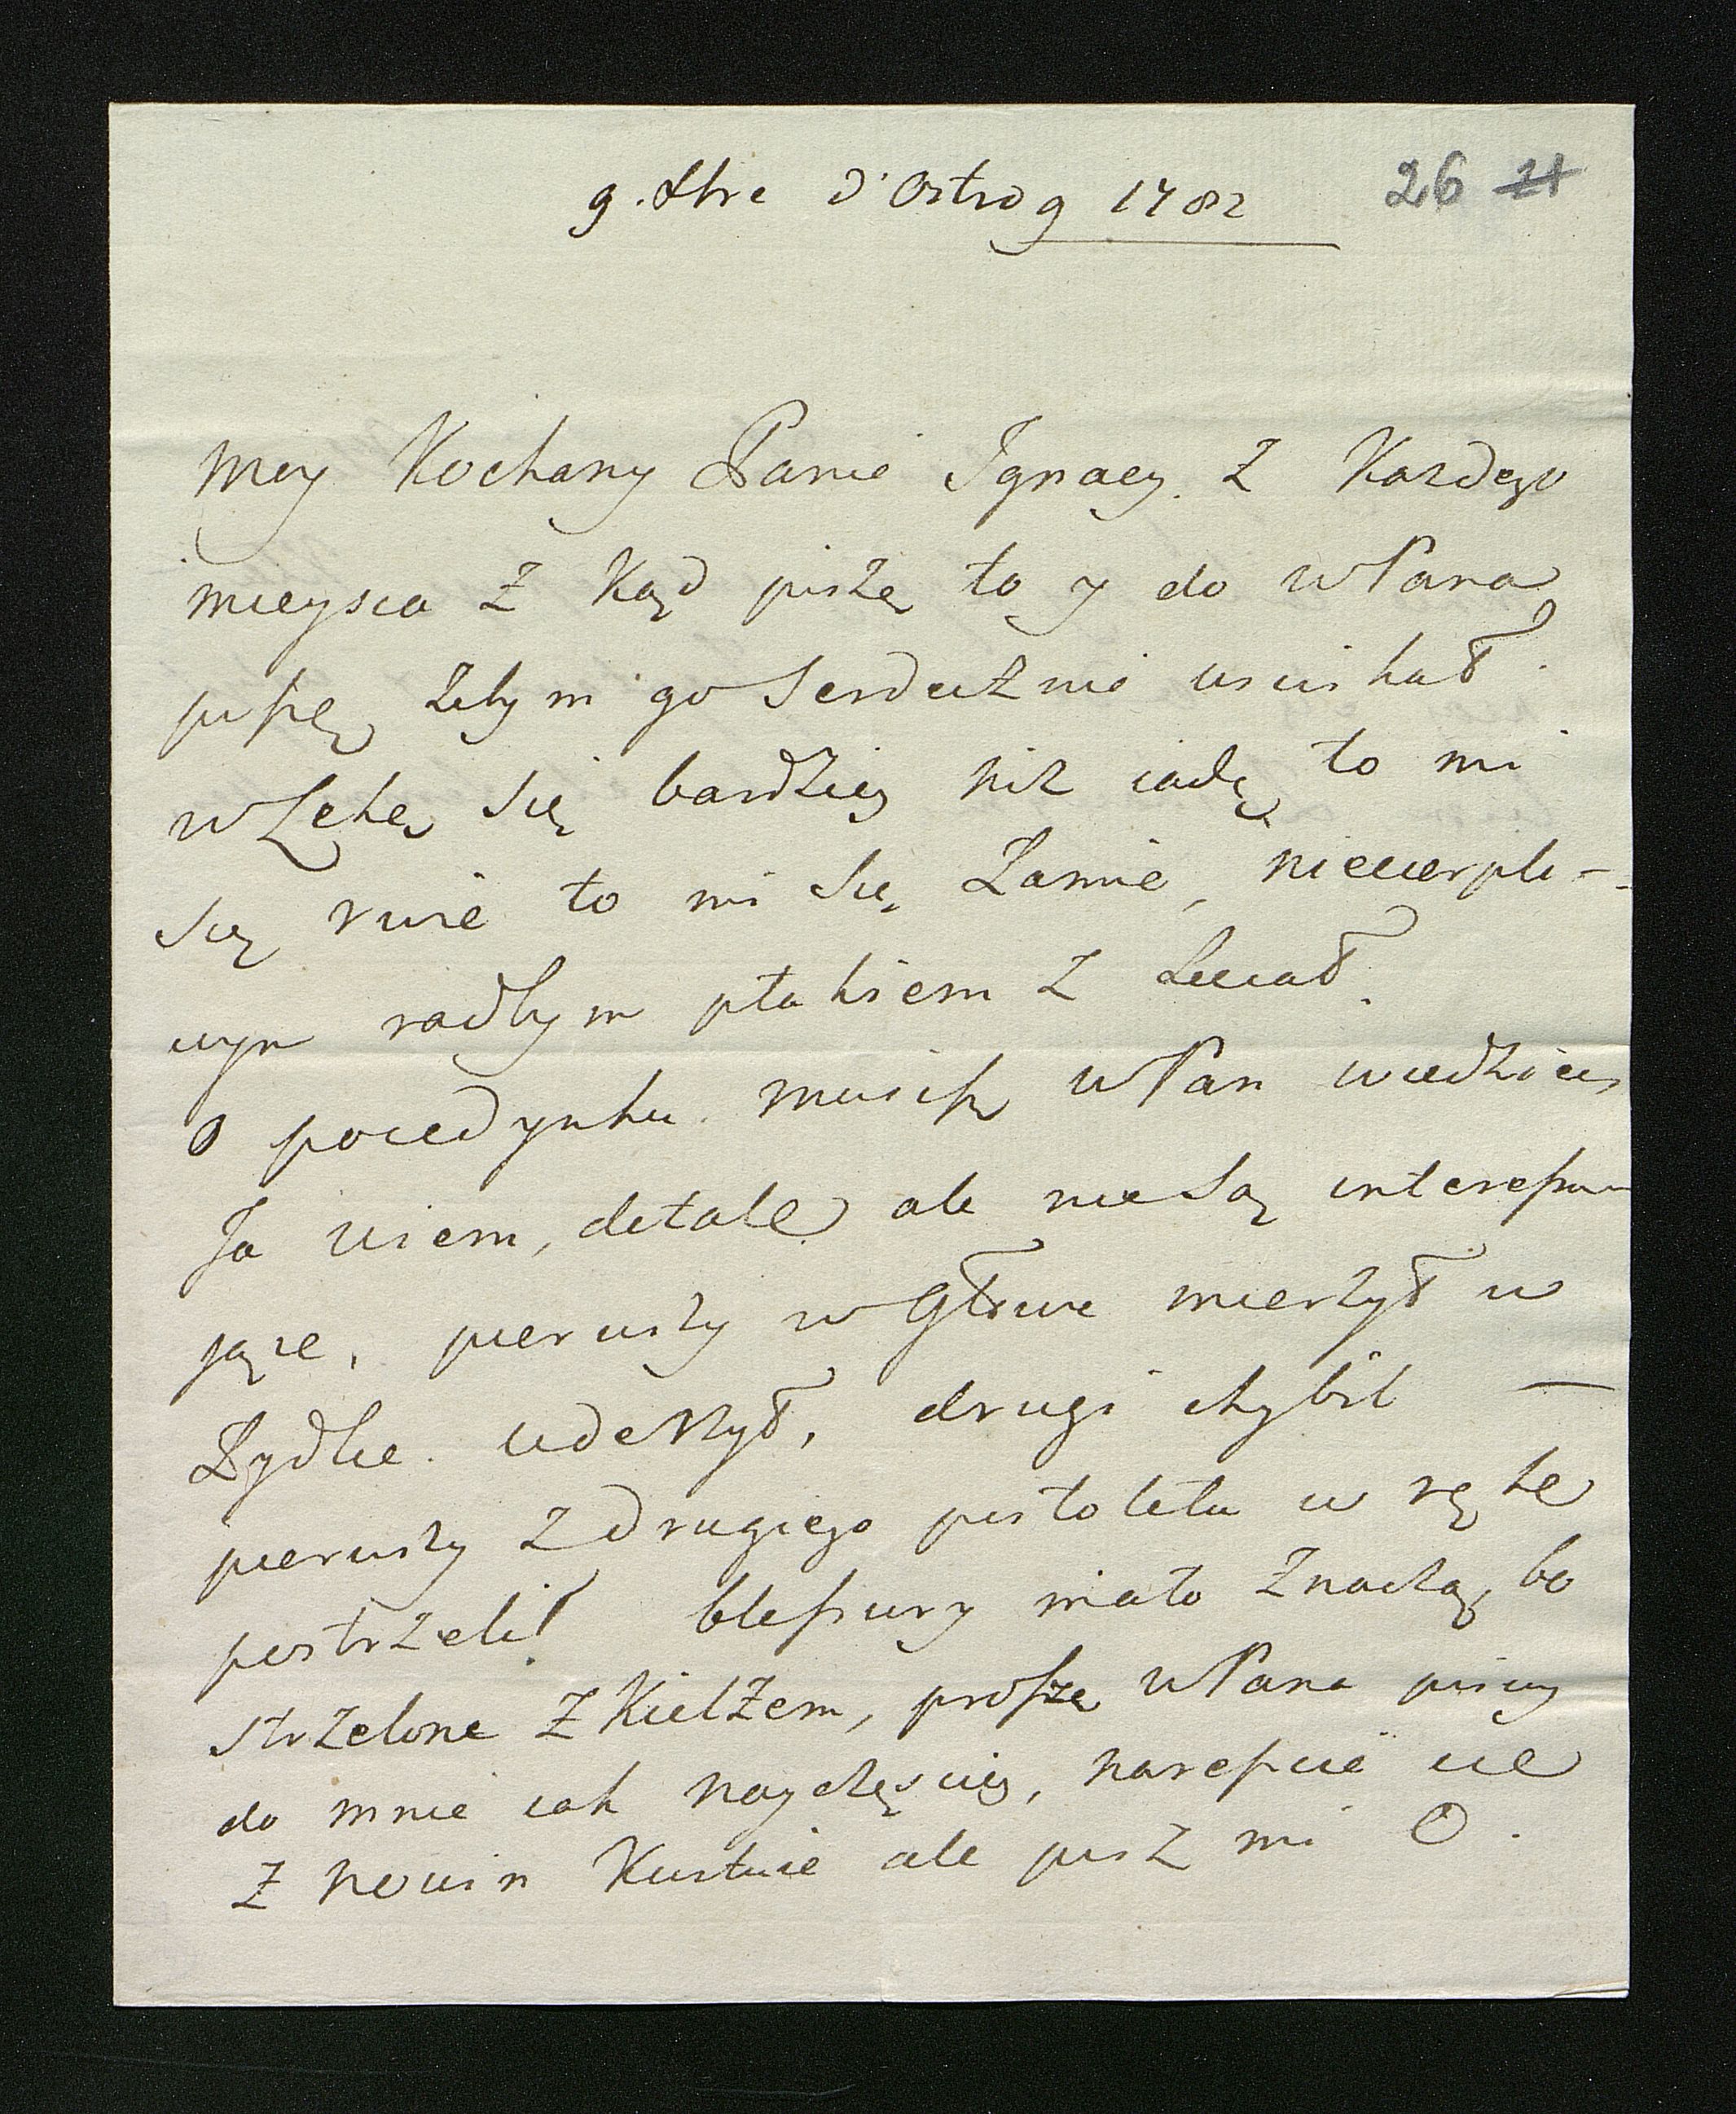 9. Xbre d'Ostrog 1782 26 21
Moy Kochany Panie Jgnacy. Z Kazdego
mieysca z Kąd piszę to y do wPana
piszę zebym go Serdecznie usciskał.
wLekę się bardziey niz iadę, to mi
się rwie to mi się Łamie, niecierpli-
wym radbym ptakiem z Leciał.
o poiedynku. musisz wPan wiedziec
Ja wiem, detale ale nie Są interessu-
jące, pierwszy w Głowe mierzył w
Łydke. uderzył, drugi chybil —
pierwszy z drugiego pistoletu w rękę
postrzelił blessury mało znaczą, bo
strzelone z Kielzem, proszę wPana pisuy
do mnie iak nayczęsciey, nareszcie ie
z nowin Kustwie ale pisz mi O.